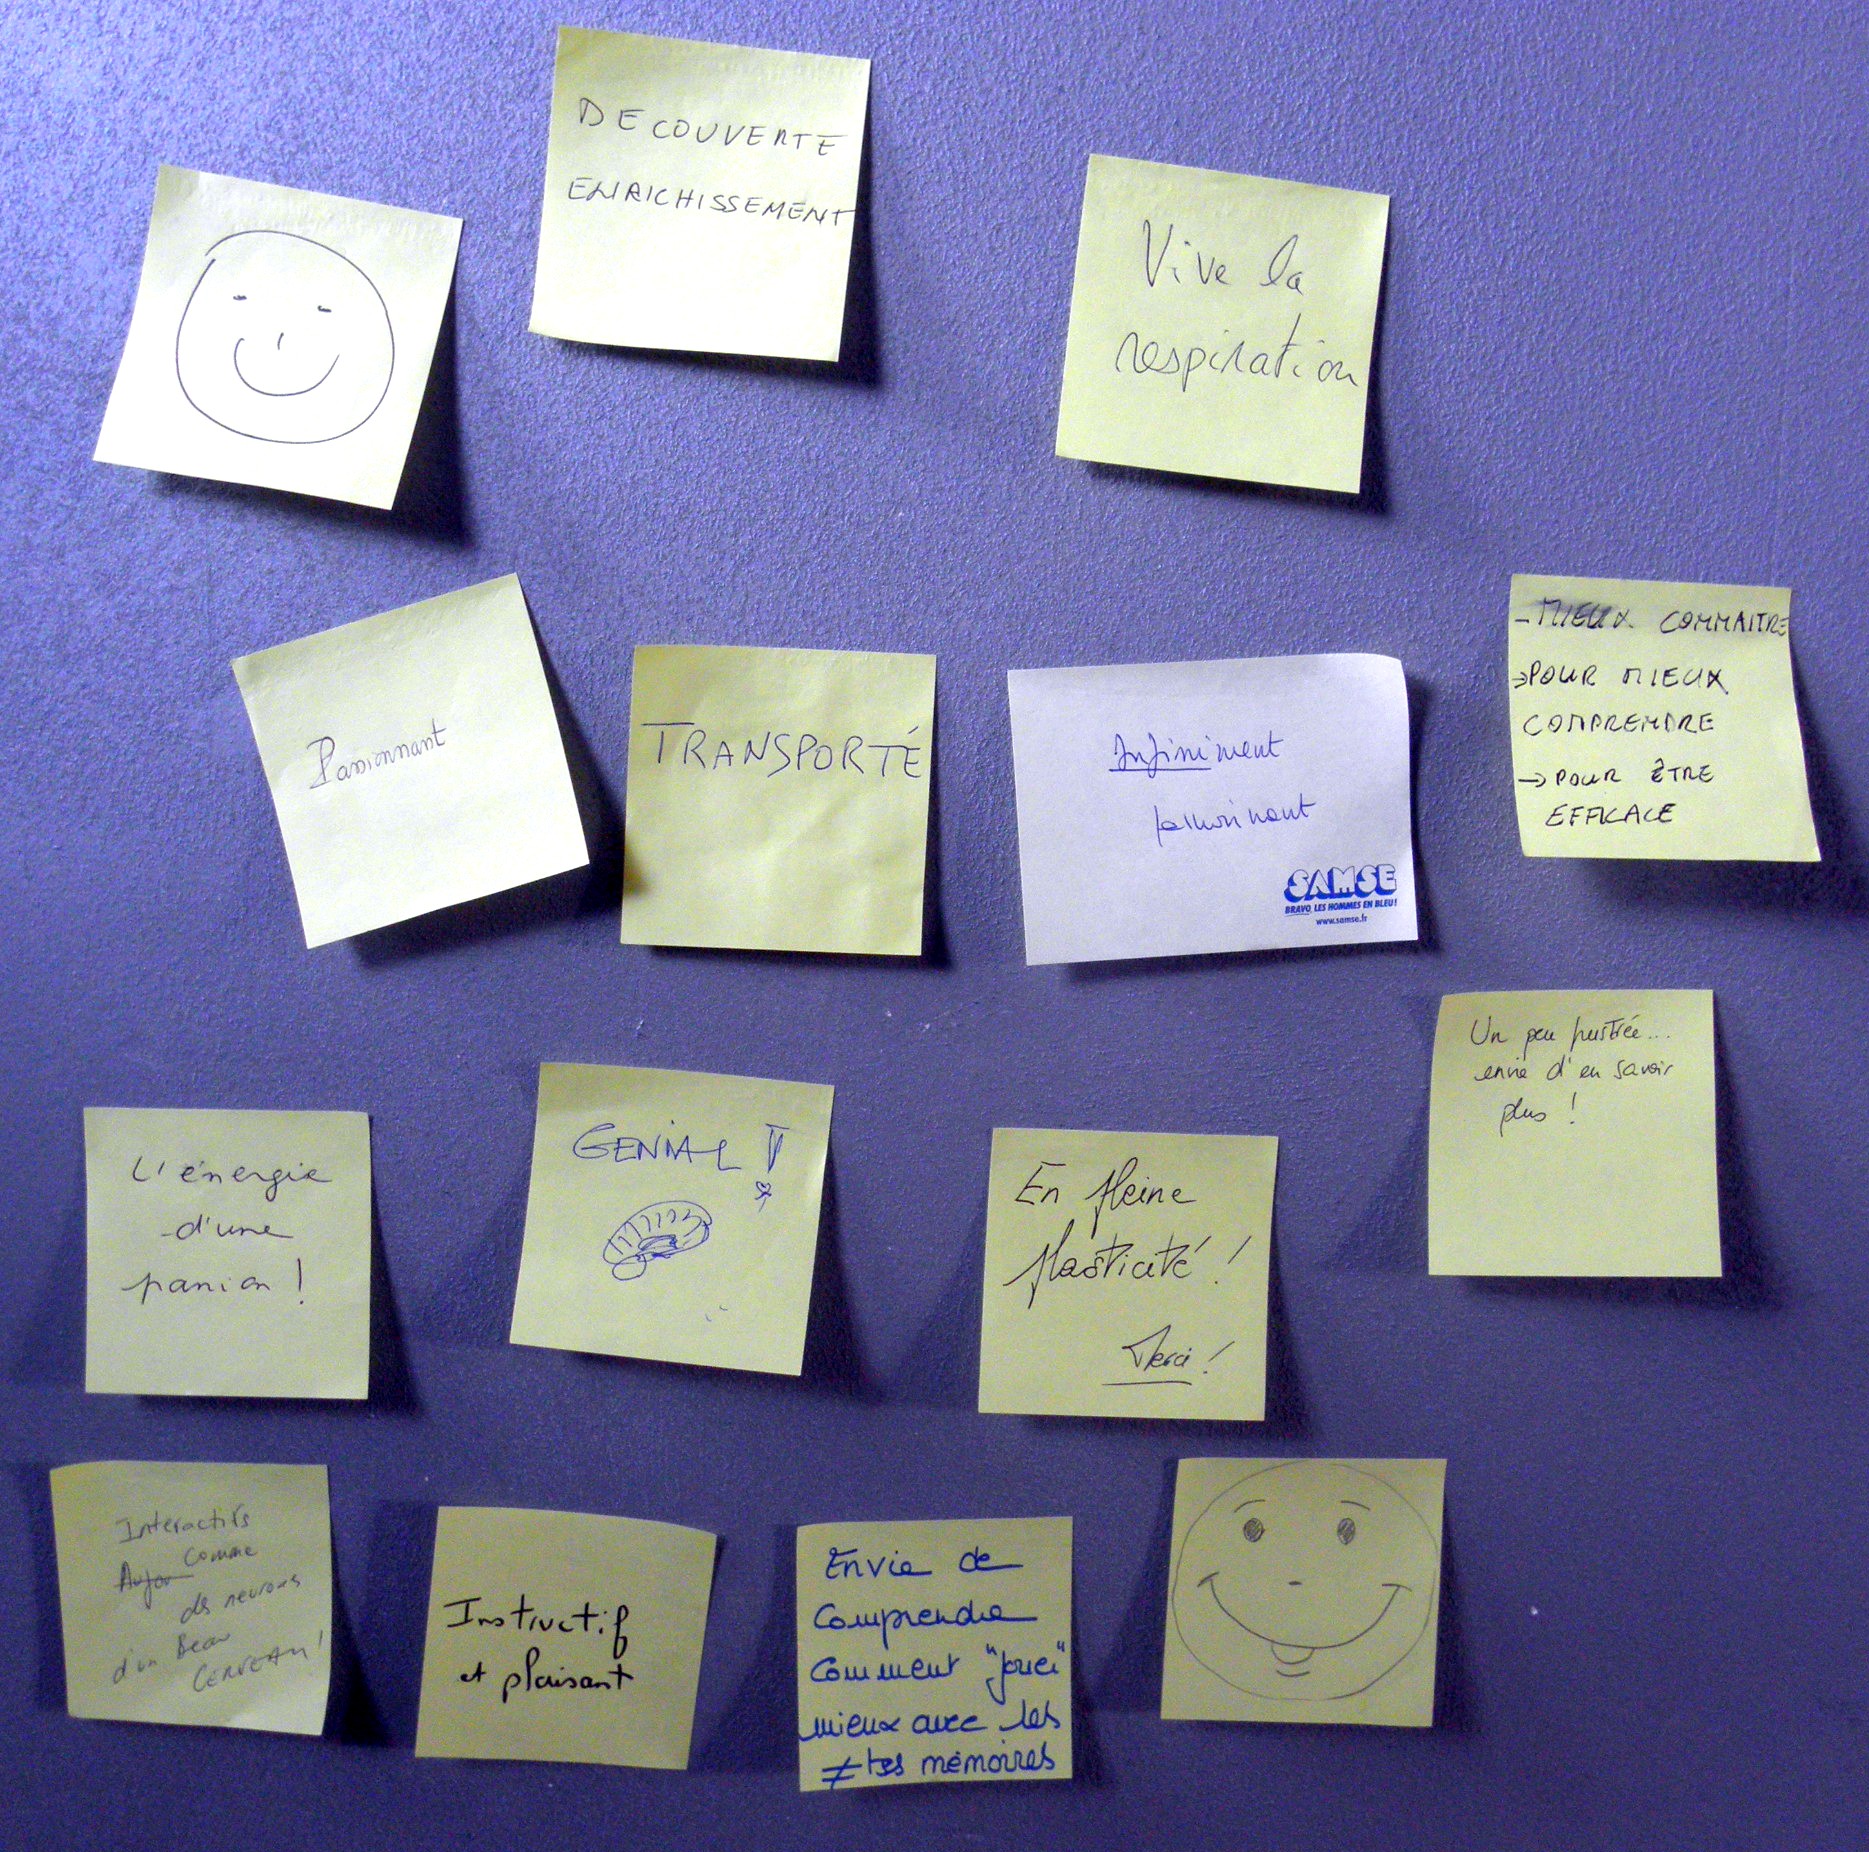 DECOUVERTE
ENRICHISSEMENT
Vive la
respiration
Passionnant
TRANSPORTÉ
Infiniment
passionnant
SAMSE
BRAVO, LES HOMMES EN BLEU!
www.samse.fr
- MIEUX CONNAITRE
→ POUR MIEUX
COMPRENDRE
→ POUR ÊTRE
EFFICACE
Un peu frustrée...
envie d'en savoir
plus !
L'énergie
d'une
passion !
GENIAL !
En pleine
plasticité !
Merci !
Interactifs
comme
des neurones
d'un Beau
CERVEAU !
Instructif
et plaisant
Envie de
comprendre
comment "jouer"
mieux avec les
≠tes mémoires